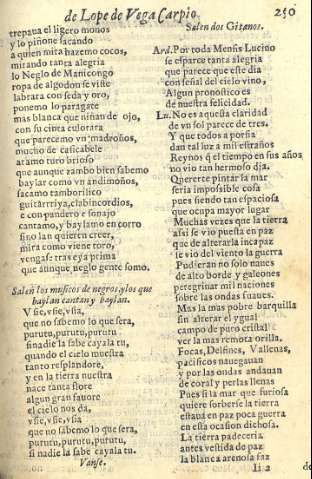 de Lope de Vega Carpio. 250
trepaua el ligero monos
y lo piñone sacando
a quien mira hazemo cocos,
mirando tanta alegria
lo Neglo de Manicongo
ropa de algodon se viste
labrara con seda y oro,
ponemo lo
mas blanca que niñan de ojo,
con su cinta culorara
que parecamo vn madroños,
mucho de cascabele
aramo turo brioso
que aunque zambo bien sabemo
baylar como vn andimoños,
sacamo tamborilico
guitarrriya, clabincordios,
e con pandero e sonajo
cantamo, y baylamo en corro
sino lan quieren creer,
mira como viene toro,
vengase tras eya prima
que aunque neglo gente somo.
Salen los musicos de negros, y los que
baylan cantan y baylan.
Vsie, vsie, vsia,
que no sabemo lo que sera,
purutu, purutu, purutu,
si nadie la sabe cayala tu,
quando el cielo muestra
tanto resplandore,
y en la tierra nuestra
nace tanta flore
algun gran fauore
el cielo nos da,
vsie, vsie, vsia,
que no sabemo lo que sera,
purutu, purutu, purutu,
si nadie la sabe cayala tu.
Vanse.
Salen dos Gitanos.
Ard. Por toda Mensis Lucino
se esparce tanta alegria
que parece que este dia
con señal del cielo vino,
Algun pronostico es
de nuestra felicidad.
Lu. No es aquesta claridad
de vn sol parece de tres.
Y que todos a porfia
dan tal luz a mil estraños
Reynos q̃ el tiempo en sus años
no vio tan hermoso dia.
Quererte pintar la mar
seria impossible cosa
pues siendo tan espaciosa
que ocupa mayor lugar
Muchas vezes que la tierra
assi se vio puesta en paz
que de alterarla incapaz
se vio del viento la guerra
Pudieran no solo naues
de alto borde y galeones
peregrinar mil naciones
sobre las ondas suaues.
Mas la mas pobre barquilla
sin alterar el ygual
campo de puro cristal
ver la mas remota orilla.
Focas, Delfines, Vallenas,
pacificos nauegauan
y por las ondas andauan
de coral y perlas llenas
Pues si la mar que furiosa
quiere sorberse la tierra
estaua en paz poca guerra
en esta ocasion dichosa.
La tierra padeceria
antes vestida de paz
la blanca arenosa faz
Ii 2 de